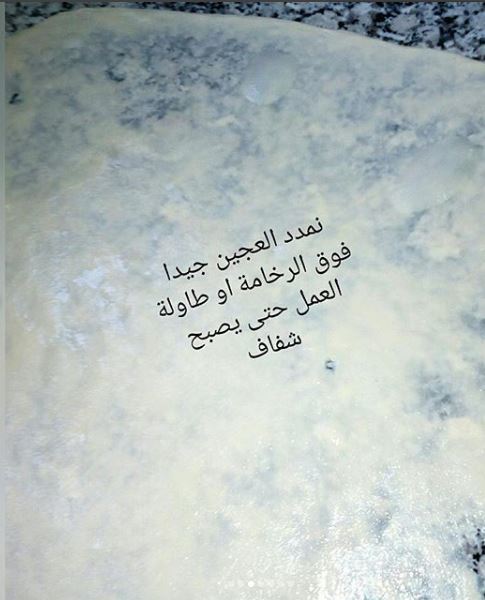 نمدد العجين جيدا
فوق الرخامة او طاولة
العمل حتى يصبح
شفاف